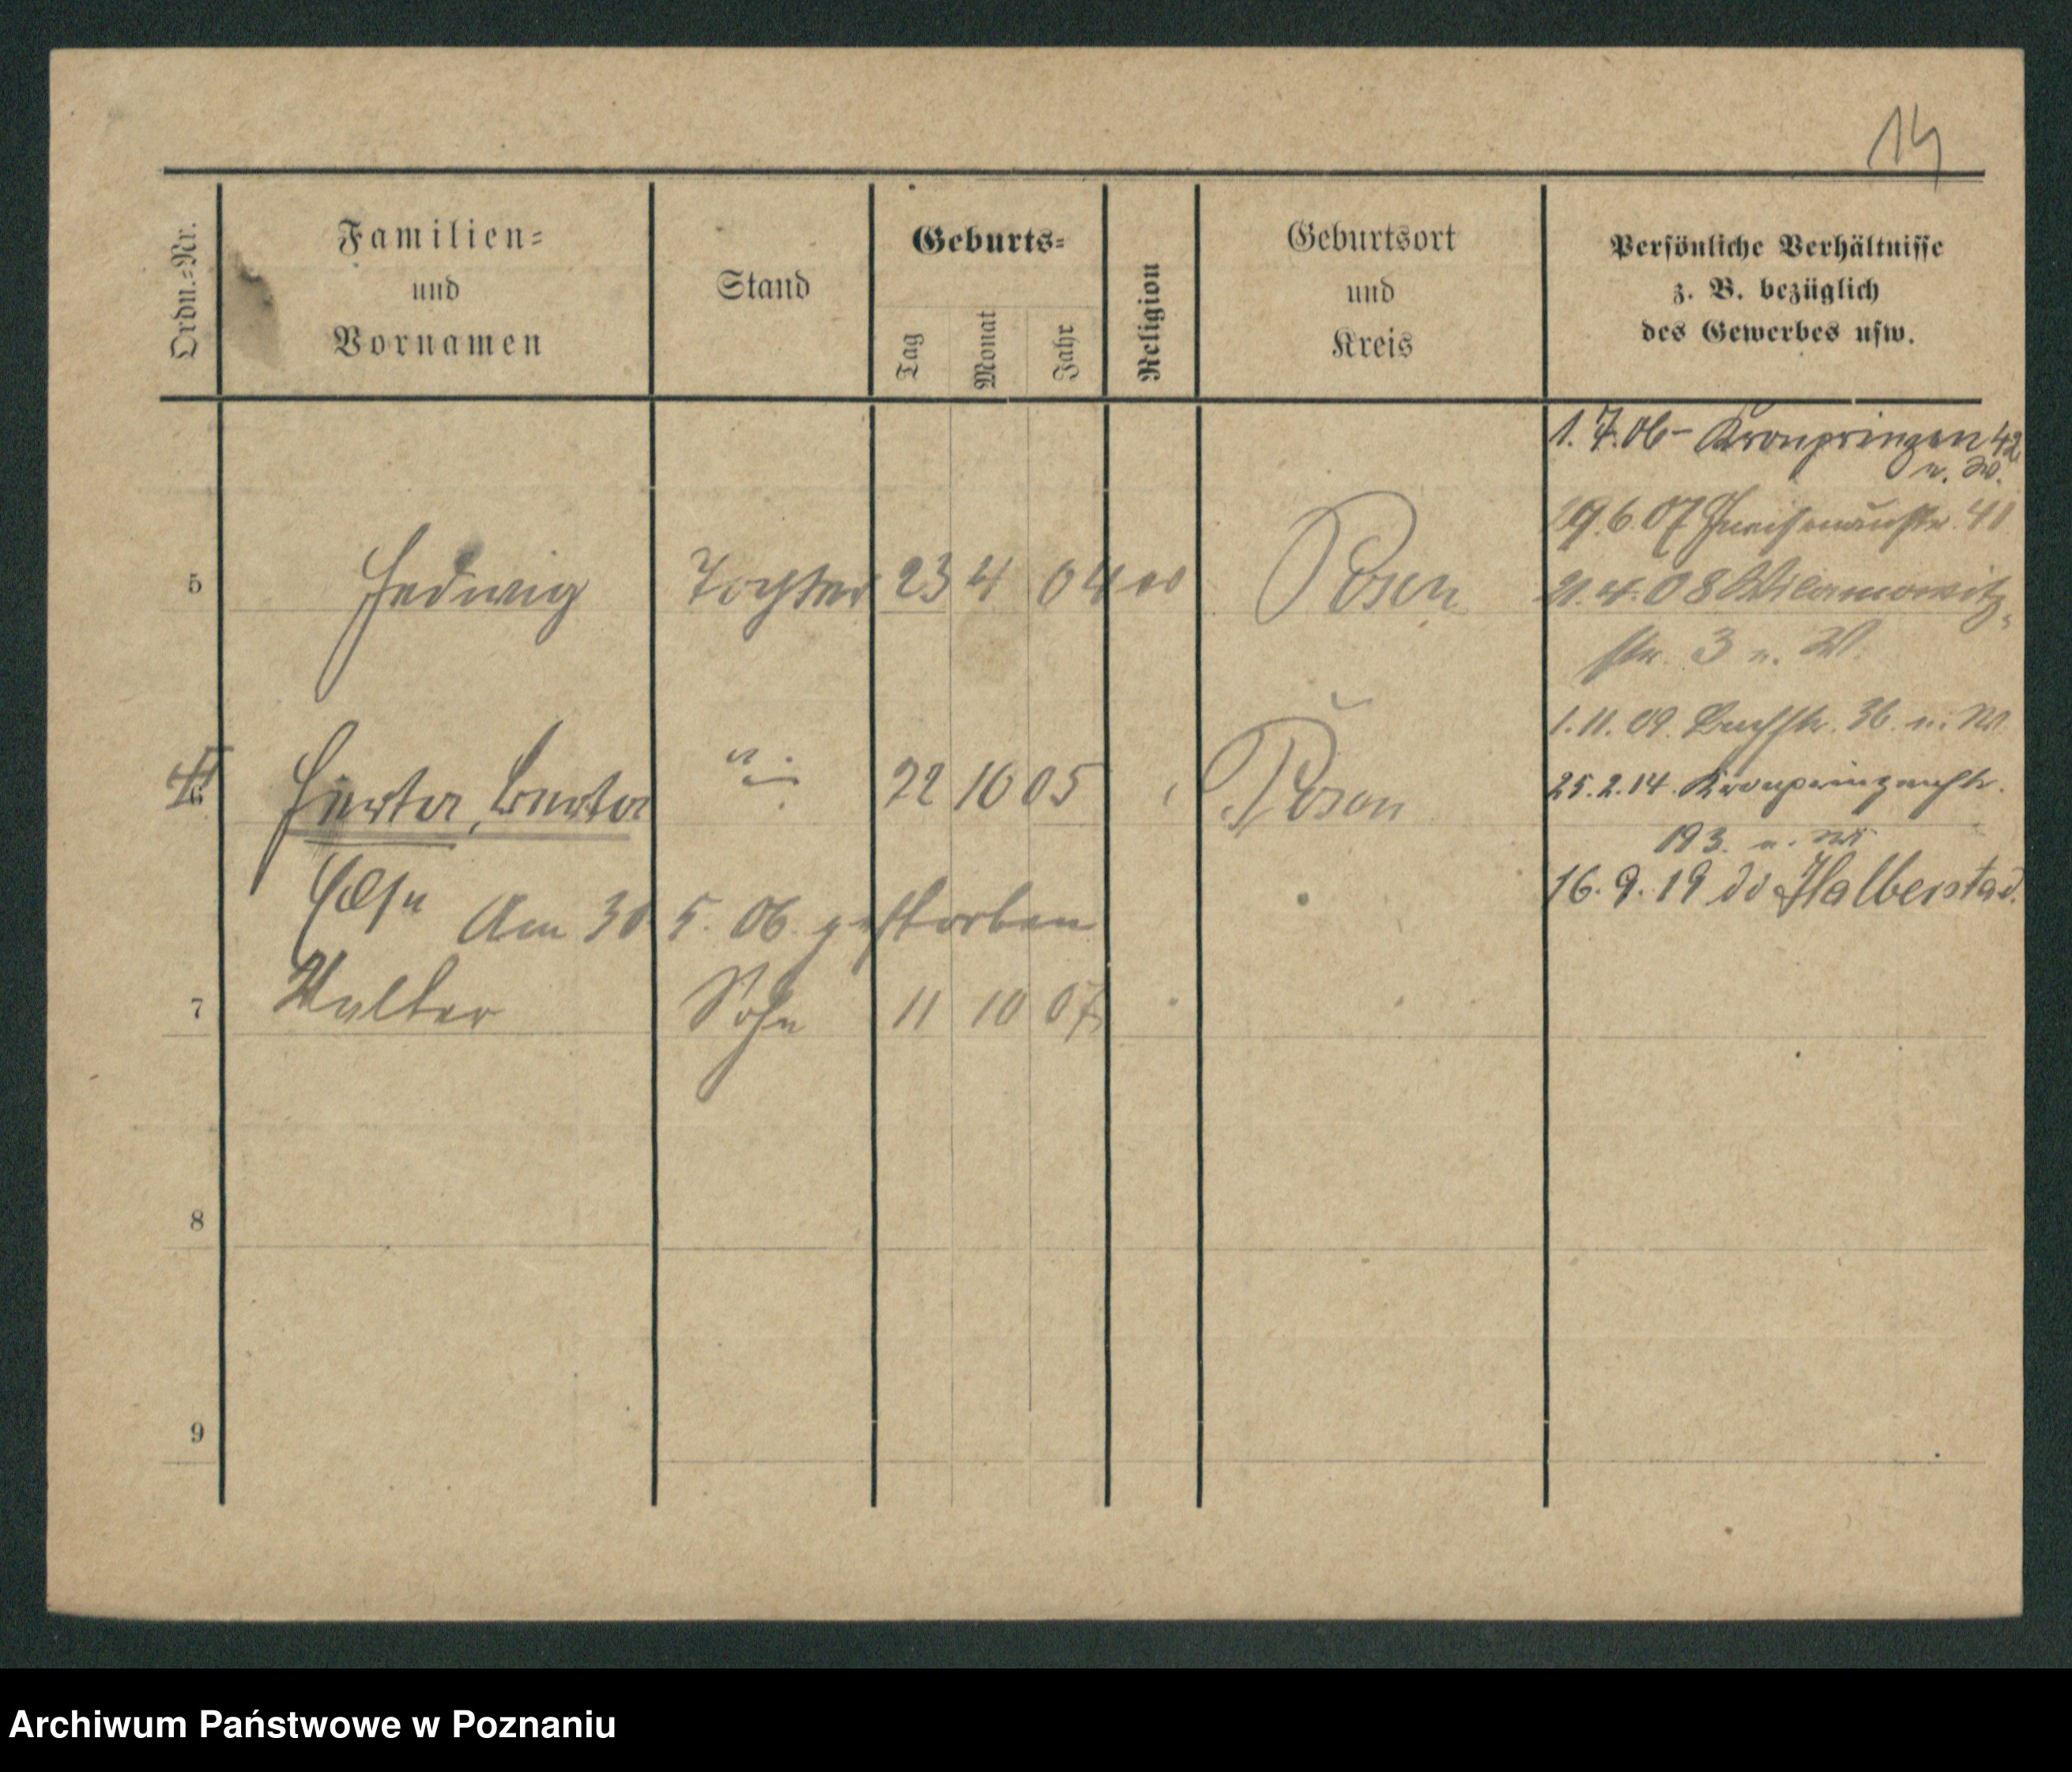 14
Ordn.-Nr.
Familien-
und
Vornamen
Stand
Geburts-
Tag
Monat
Jahr
Religion
Geburtsort
und
Kreis
Persönliche Verhältnisse
z. B. bezüglich
des Gewerbes usw.
1. 7. 06 - Kronprinzen 42
u. W.
29. 6. 07 Gneisenaustr. 41
5 Hedwig Tochter 23 4 04 Posen
21. 4. 08 Wilamowitz-
str. 3 u. W.
1. 11. 09. Bachstr. 36. u. W
6 Herta, Berta 22 10 05 Posen
25. 2. 14. Kronprinzenstr.
193. u. W
Else
16. 9. 19 Halberstad.
Am 30 5. 06. gestorben
7 Walter Sohn 11 10 07
8
9
Archiwum Państwowe w Poznaniu